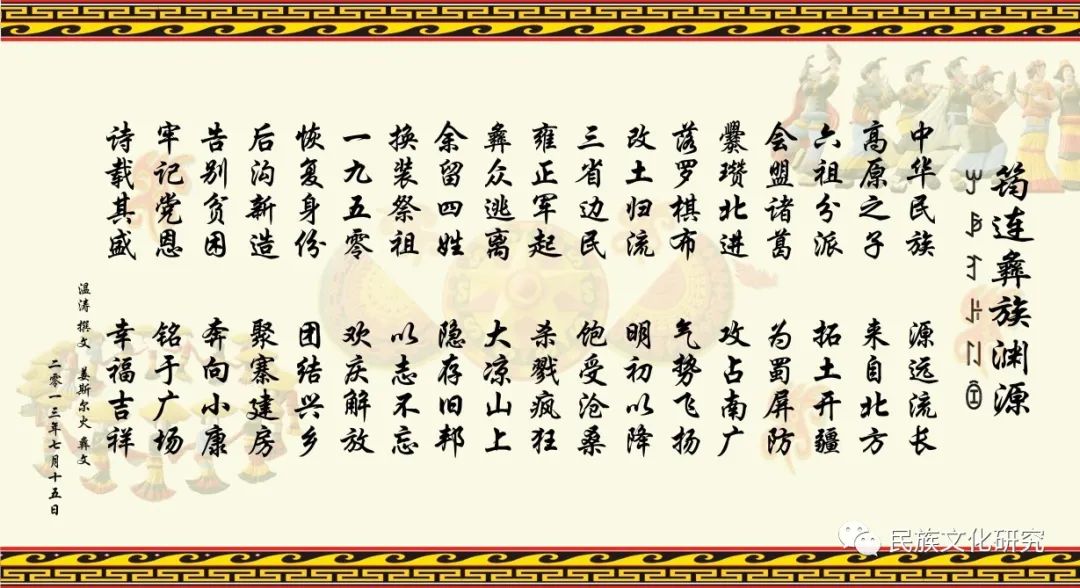 筠连彝族渊源
中华民族 源远流长
高原之子 来自北方
六祖分派 拓土开疆
会盟诸葛 为蜀屏防
爨瓒北进 攻占南广
落罗棋布 气势飞扬
改土归流 明初以降
三省边民 饱受沧桑
雍正军起 杀戮疯狂
彝众逃离 大凉山上
余留四姓 隐存旧邦
换装祭祖 以志不忘
一九五零 欢庆解放
恢复身份 团结兴乡
后沟新造 聚寨建房
告别贫困 奔向小康
牢记党恩 铭于广场
诗载其盛 幸福吉祥
温涛 撰文 姜斯尔火 彝文
二零一三年七月十五日
民族文化研究